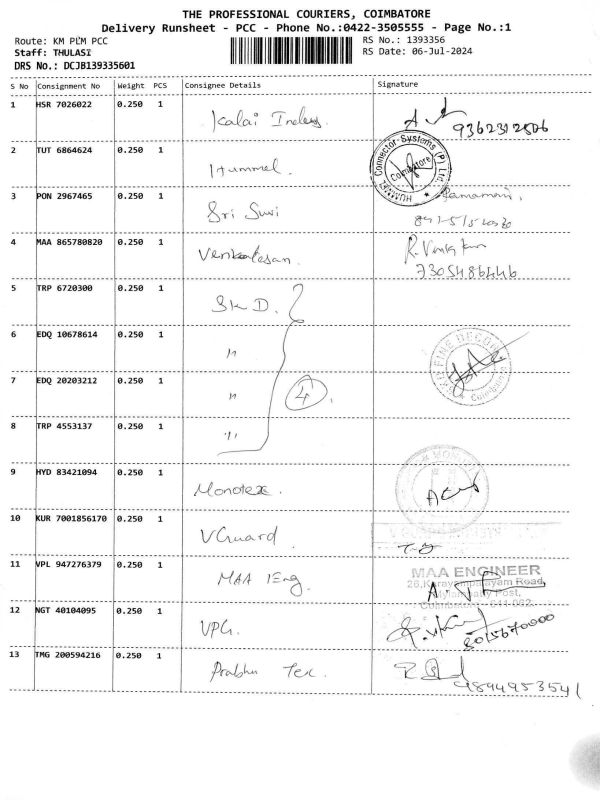 THE PROFESSIONAL COURIERS, COIMBATORE
Delivery Runsheet - PCC - Phone No.:0422-3505555 - Page No.:1
Route: KM PLM PCC
RS No.: 1393356
Staff: THULASI
RS Date: 06-Jul-2024
DRS No.: DCJB139335601
S No Consignment No Weight PCS Consignee Details Signature
1 HSR 7026022 0.250 1 Kalai
2 TUT 6864624 0.250 1 Hummel.
Connector Systems (P) Ltd. Coimbatore HUMMEL
3 PON 2967465 0.250 1 Sri Suri
4 MAA 865780820 0.250 1 Venkatesan. R. Venkat
7305486446
5 TRP 6720300 0.250 1 SK D.
6 EDQ 10678614 0.250 1 "
FINE DECOR Coimbatore
7 EDQ 20203212 0.250 1 "
4
8 TRP 4553137 0.250 1 "
9 HYD 83421094 0.250 1 Monotex.
10 KUR 7001856170 0.250 1 VGuard
11 VPL 947276379 0.250 1 MAA Eng.
MAA ENGINEER
26,Karayampalayam Road,
Mylampatty Post,
Coimbatore - 641 062.
12 NGT 40104095 0.250 1 VPG.
8015670000
13 TMG 200594216 0.250 1 Prabhu Tex.
9894953541